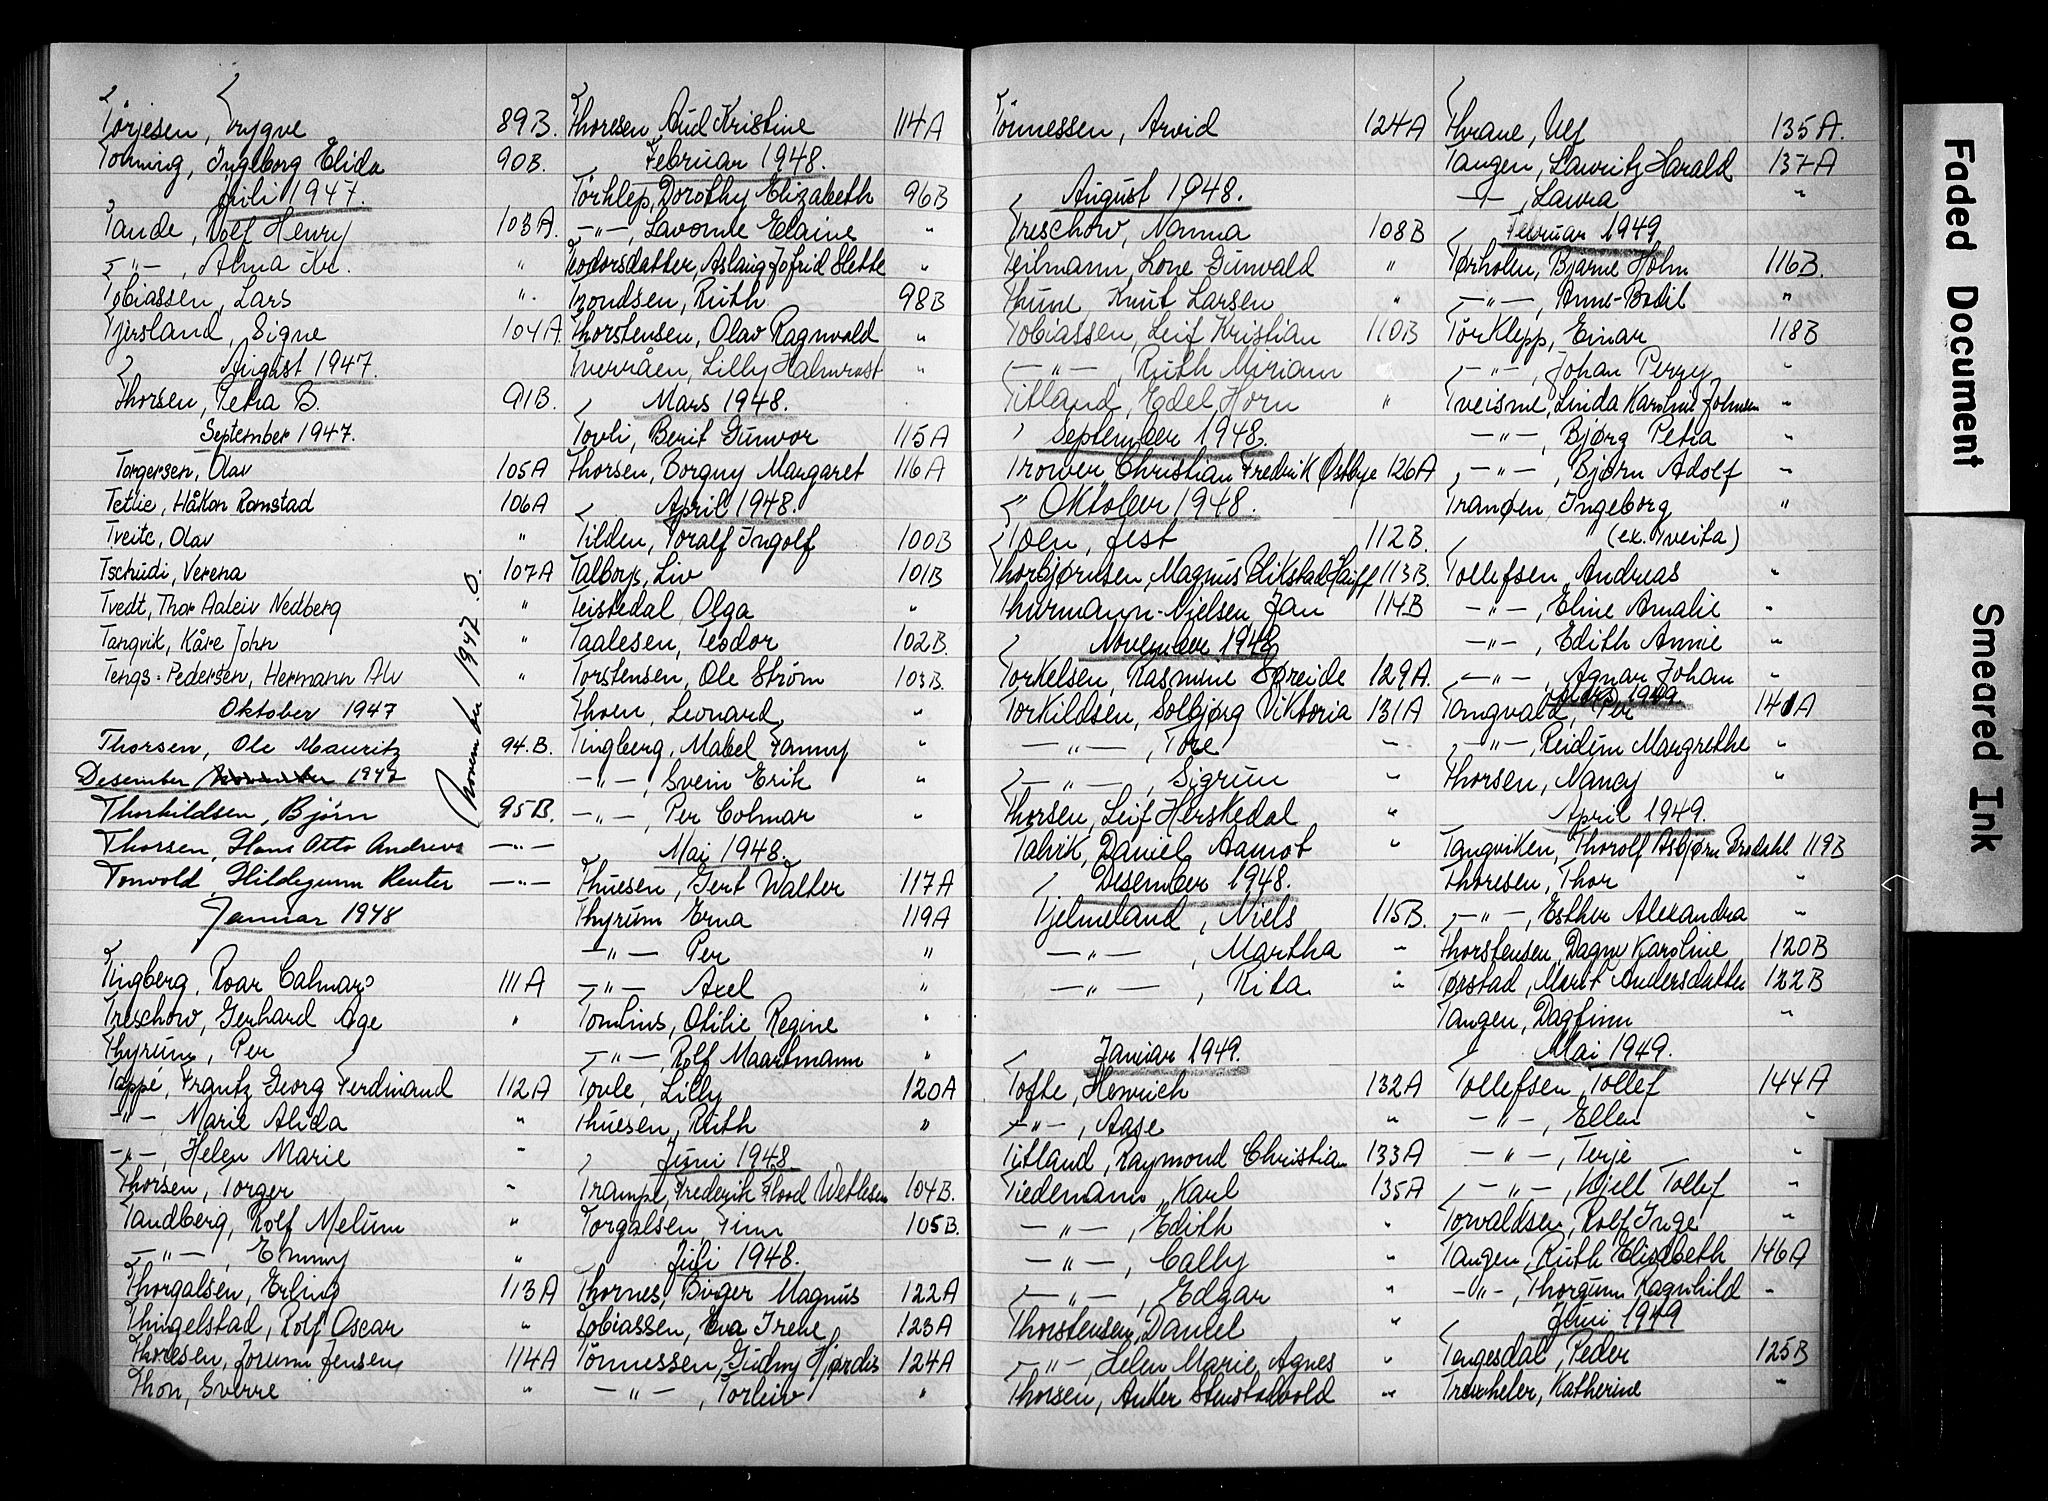 Törjesen, Trygve 89B.
Tonning, Ingeborg Elida 90B.
Juli 1947.
Tande, Rolf Henry 103A.
—"—, Alma Kr. "
Tobiassen, Lars "
Tjersland, Signe 104A.
August 1947.
Thorsen, Petra B. 91B.
September 1947.
Torgersen, Olav 105A
Tetlie, Håkon Ramstad 106A
Tveite, Olav "
Tschudi, Verena 107A
Tvedt, Thor Aaleiv Nedberg "
Tangvik, Kåre John "
Tengs-Pedersen, Hermann Alv "
Oktober 1947
Thorsen, Ole Mauritz 94.B.
Desember November 1947
November 1947. 0.
Thorkildsen, Björn 95B.
Thorsen, Hans Otto Andreas —"—
Tonvold, Hildegunn Reuter —"—
Januar 1948
Tingberg, Roar Calmar 111A
Treschow, Gerhard Åge "
Thyrum, Per
Tappé, Frantz Georg Ferdinand 112A
—"—, Marie Alida "
—"—, Helen Marie "
Thorsen, Torger "
Tandberg, Rolf Melum "
—"—, Emmy "
Thorgalsen, Erling 113A
Thingelstad, Rolf Oscar "
Thoresen, Jorunn Jensen 114A
Thon, Sverre "
Thoresen, Aud Kristine 114A
Februar 1948.
Törklep, Dorothy Elizabeth 96B
—"—, Lavonne Elaine "
Teodorsdatter, Aslaug Jofrid Slette "
Trondsen, Ruth 98B
Thorstensen, Olav Ragnvald "
Tverråen, Lilly Halmrast "
Mars 1948.
Tovli, Berit Gunvor 115A
Thorsen, Borgny Margaret 116A
April 1948.
Tilden, Toralf Ingolf 100B
Talboys, Liv 101B
Teistedal, Olga "
Taalesen, Teodor 102B.
Torstensen, Ole Strøm 103B.
Thoen, Leonard "
Tingberg, Mabel Fanny "
—"—, Svein Erik "
—"—, Per Colmar "
Mai 1948.
Thuesen, Gert Walter 117A
Thyrum Erna 119A
—"— Per "
—"— Axel "
Tomlins, Otilie Regine "
—"—, Rolf Maartmann "
Tovle, Lilly 120A
Thuesen, Ruth "
Juni 1948.
Trampe, Frederik Flood Wetlesen 104B.
Torgalsen, Finn 105B.
Juli 1948.
Thornes, Birger Magnus 122A
Tobiassen, Eva Irene 123A
Tönnessen, Gudny Hjørdis 124A
—"—, Torleiv "
Tönnessen, Arvid 124A
August 1948.
Treschow, Nanna 108B
Teilmann, Lone Gunvald "
Thune Knut Larsen "
Tobiassen, Leif Kristian 110B
—"—, Ruth Miriam "
Titland, Edel Horn "
September 1948.
Trower, Christian Fredrik Østbye 126A
Oktober 1948.
Toen, Jest 112B.
Thorbjørnsen, Magnus 113B.
Thurmann-Nielsen, Jan 114B
November 1948
Torkelsen, Rasmine Søreide 129A.
Torkildsen, Solbjørg Viktoria 131A
—"—, Tore "
—"—, Sigrun "
Thorsen, Leif Herskedal "
Talvik, Daniel Aamot "
Desember 1948.
Tjelmeland, Niels 115B.
—"—, Martha "
—"—, Rita "
Januar 1949.
Tofte, Henrich 132A
—"—, Aase "
Titland, Raymond Christian 133A
Tiedemann, Karl 135A
—"—, Edith "
—"—, Cally "
—"—, Edgar "
Thorstensen, Daniel "
—"—, Helen Marie Agnes "
Thorsen, Anker "
Thrane, Ulf 135A.
Tangen, Lauritz Harald 137A
—"—, Laura "
Februar 1949
Tørholen, Bjarne Holm 116B.
—"—, Anne-Bodil "
TörKlepp, Einar 118B
—"—, Johan Perry "
Tveisme, Linda Karoline Johnsen "
—"—, Bjørg Petra "
—"—, Bjørn Adolf "
Tranøen, Ingeborg "
(ex. Tveita)
Tollefsen, Andreas "
—"—, Eline Amalie "
—"—, Edith Annie "
—"—, Agnar Johan "
Mars 1949.
Tangvald, Per 141A
—"—, Reidun Margrethe "
Thorsen, Nancy "
April 1949.
Tangviken, Thorolf Asbjørn 119B
Thoresen, Thor "
—"—, Esther Alexandra "
Thorstensen, Dagny Karoline 120B
Tørstad, Marit Andersdatter 122B
Tangen, Dagfinn "
Mai 1949.
Tollefsen, Tollef 144A
—"—, Ellen "
—"—, Terje "
—"—, Kjell Tollef "
Torvaldsen, Rolf Inge "
Tangen, Ruth Elisabeth 146A
—"—, Thorgunn Ragnhild "
Juni 1949
Tengesdal, Peder 125B
Treuheler, Katherine "
Faded Document
Smeared Ink